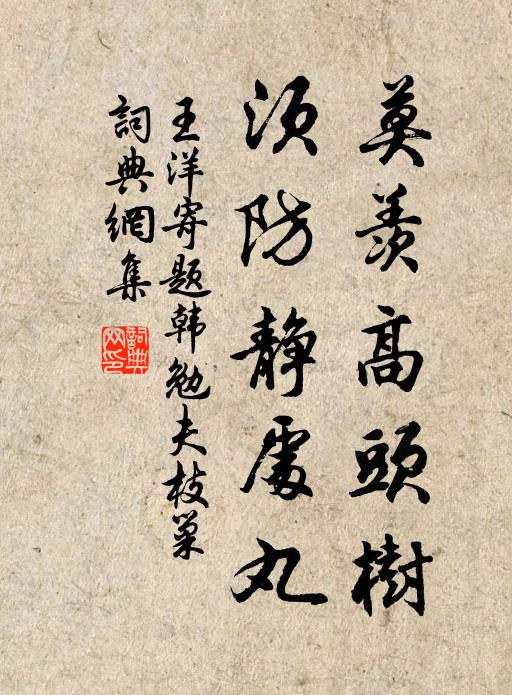 莫羨高頭樹
須防静處丸
王洋寄題韓勉夫枝巢
詞典網集
詞典
网印